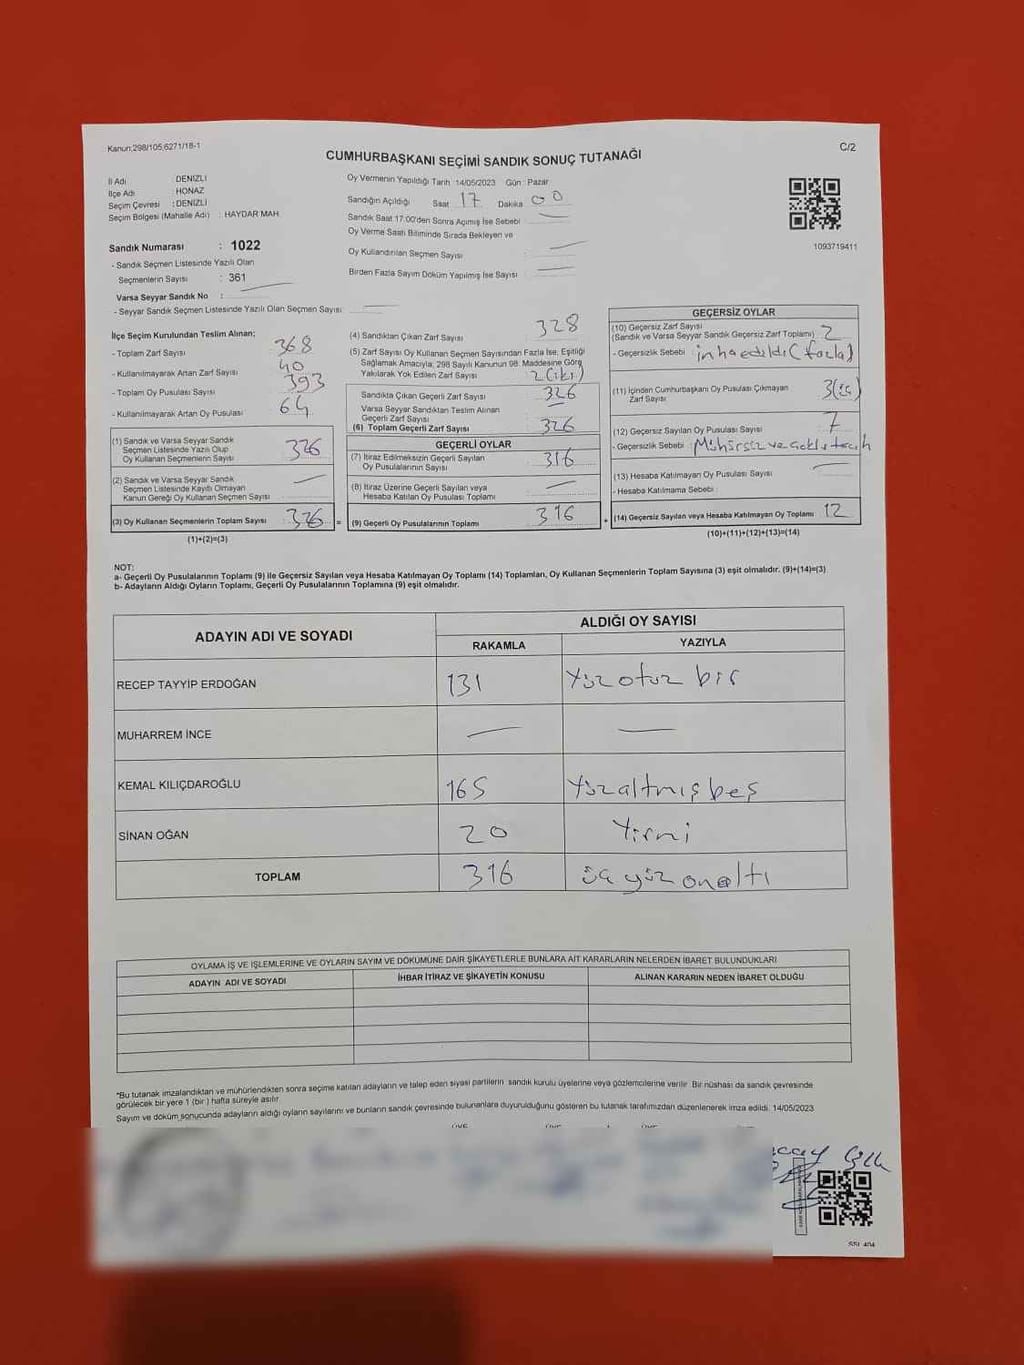 Kanun:298/105,6271/18-1
C/2
CUMHURBAŞKANI SEÇİMİ SANDIK SONUÇ TUTANAĞI
İl Adı : DENİZLİ
İlçe Adı : HONAZ
Seçim Çevresi : DENİZLİ
Seçim Bölgesi (Mahalle Adı) : HAYDAR MAH.
Sandık Numarası : 1022
- Sandık Seçmen Listesinde Yazılı Olan
Seçmenlerin Sayısı : 361
Varsa Seyyar Sandık No :
- Seyyar Sandık Seçmen Listesinde Yazılı Olan Seçmen Sayısı :
Oy Vermenin Yapıldığı Tarih : 14/05/2023 Gün : Pazar
Sandığın Açıldığı Saat 17 Dakika 00
Sandık Saat 17:00'den Sonra Açılmış İse Sebebi
Oy Verme Saati Bitiminde Sırada Bekleyen ve
Oy Kullandırılan Seçmen Sayısı :
Birden Fazla Sayım Döküm Yapılmış İse Sayısı :
1093719411
İlçe Seçim Kurulundan Teslim Alınan;
- Toplam Zarf Sayısı : 368
- Kullanılmayarak Artan Zarf Sayısı : 40
- Toplam Oy Pusulası Sayısı : 393
- Kullanılmayarak Artan Oy Pusulası : 64
(1) Sandık ve Varsa Seyyar Sandık
Seçmen Listesinde Yazılı Olup
Oy Kullanan Seçmenlerin Sayısı 326
(2) Sandık ve Varsa Seyyar Sandık
Seçmen Listesinde Kayıtlı Olmayan
Kanun Gereği Oy Kullanan Seçmen Sayısı
(3) Oy Kullanan Seçmenlerin Toplam Sayısı 326 =
(1)+(2)=(3)
(4) Sandıktan Çıkan Zarf Sayısı 328
(5) Zarf Sayısı Oy Kullanan Seçmen Sayısından Fazla İse, Eşitliği
Sağlamak Amacıyla; 298 Sayılı Kanunun 98. Maddesine Göre
Yakılarak Yok Edilen Zarf Sayısı 2 (iki)
Sandıkta Çıkan Geçerli Zarf Sayısı 326
Varsa Seyyar Sandıktan Teslim Alınan
Geçerli Zarf Sayısı
(6) Toplam Geçerli Zarf Sayısı 326
GEÇERLİ OYLAR
(7) İtiraz Edilmeksizin Geçerli Sayılan
Oy Pusulalarının Sayısı 316
(8) İtiraz Üzerine Geçerli Sayılan veya
Hesaba Katılan Oy Pusulası Toplamı
(9) Geçerli Oy Pusulalarının Toplamı 316 +
GEÇERSİZ OYLAR
(10) Geçersiz Zarf Sayısı
(Sandık ve Varsa Seyyar Sandık Geçersiz Zarf Toplamı) 2
- Geçersizlik Sebebi : imha edildi (fazla)
(11) İçinden Cumhurbaşkanı Oy Pusulası Çıkmayan
Zarf Sayısı 3 (üç)
(12) Geçersiz Sayılan Oy Pusulası Sayısı 7
- Geçersizlik Sebebi : Mühürsüz ve çoklu tercih
(13) Hesaba Katılmayan Oy Pusulası Sayısı
- Hesaba Katılmama Sebebi :
(14) Geçersiz Sayılan veya Hesaba Katılmayan Oy Toplamı 12
(10)+(11)+(12)+(13)=(14)
NOT:
a- Geçerli Oy Pusulalarının Toplamı (9) ile Geçersiz Sayılan veya Hesaba Katılmayan Oy Toplamı (14) Toplamları, Oy Kullanan Seçmenlerin Toplam Sayısına (3) eşit olmalıdır. (9)+(14)=(3)
b- Adayların Aldığı Oyların Toplamı, Geçerli Oy Pusulalarının Toplamına (9) eşit olmalıdır.
ADAYIN ADI VE SOYADI
ALDIĞI OY SAYISI
RAKAMLA YAZIYLA
RECEP TAYYİP ERDOĞAN 131 Yüzotuz bir
MUHARREM İNCE
KEMAL KILIÇDAROĞLU 165 Yüzaltmışbeş
SİNAN OĞAN 20 Yirmi
TOPLAM 316 üçyüzonaltı
OYLAMA İŞ VE İŞLEMLERİNE VE OYLARIN SAYIM VE DÖKÜMÜNE DAİR ŞİKAYETLERLE BUNLARA AİT KARARLARIN NELERDEN İBARET BULUNDUKLARI
ADAYIN ADI VE SOYADI İHBAR İTİRAZ VE ŞİKAYETİN KONUSU ALINAN KARARIN NEDEN İBARET OLDUĞU
*Bu tutanak imzalandıktan ve mühürlendikten sonra seçime katılan adayların ve talep eden siyasi partilerin sandık kurulu üyelerine veya gözlemcilerine verilir. Bir nüshası da sandık çevresinde
görülecek bir yere 1 (bir ) hafta süreyle asılır.
Sayım ve döküm sonucunda adayların aldığı oyların sayılarını ve bunların sandık çevresinde bulunanlara duyurulduğunu gösteren bu tutanak tarafımızdan düzenlenerek imza edildi. 14/05/2023